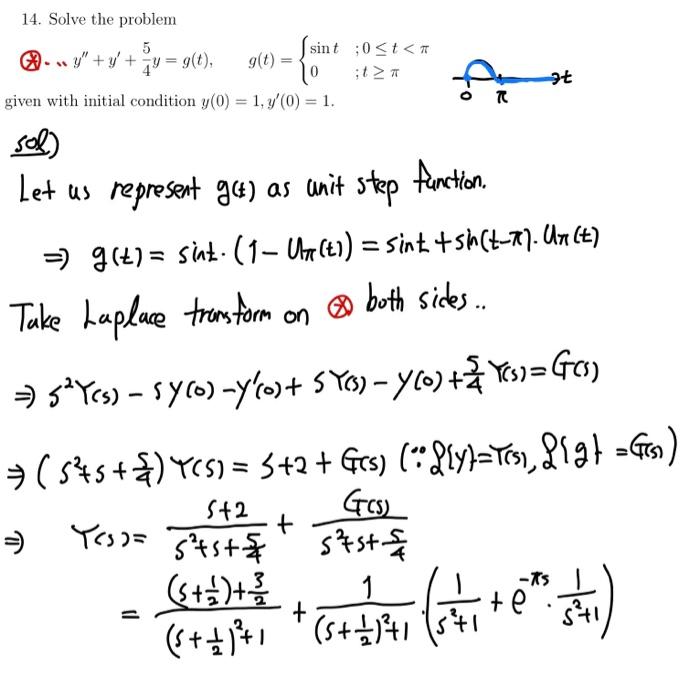 14. Solve the problem
⊛... y″ + y′ + 5/4 y = g(t), g(t) = { sin t ; 0 ≤ t < π
0 ; t ≥ π
0 π t
given with initial condition y(0) = 1, y′(0) = 1.
sol)
Let us represent g(t) as unit step function.
⇒ g(t) = sint · (1 − Uπ(t)) = sint + sin(t−π) · Uπ(t)
Take Laplace transform on ⊛ both sides..
⇒ s²Y(s) − sy(0) − y′(0) + sY(s) − y(0) + 5/4 Y(s) = G(s)
⇒ (s² + s + 5/4) Y(s) = s + 2 + G(s) (∵ ℒ{y} = Y(s), ℒ{g} = G(s))
⇒ Y(s) = (s+2)/(s² + s + 5/4) + G(s)/(s² + s + 5/4)
= ((s + 1/2) + 3/2)/((s + 1/2)² + 1) + 1/((s + 1/2)² + 1) · (1/(s² + 1) + e^(−πs) · 1/(s² + 1))